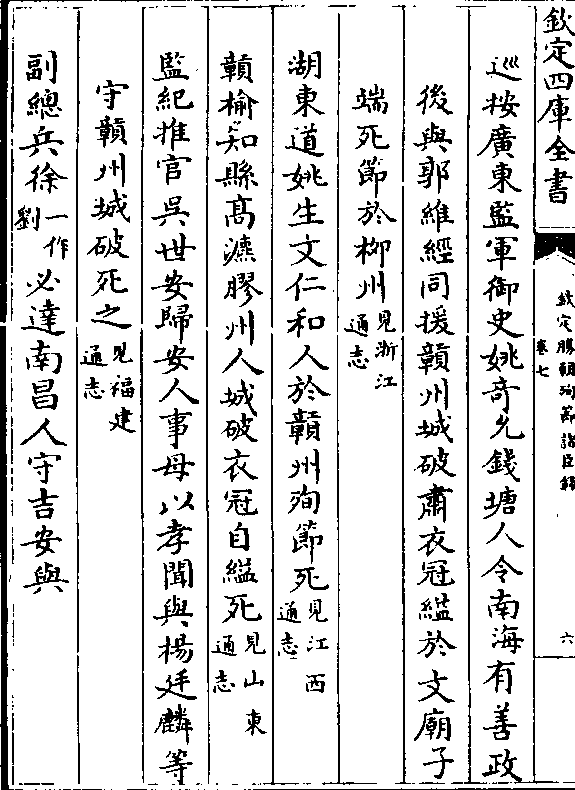 欽定四庫全書
欽定勝朝殉節諸臣錄
卷七
六
巡按廣東監軍御史姚奇允錢塘人令南海有善政
後與郭維經同援贛州城破肅衣冠縊於文廟子
端死節於柳州見浙江通志
湖東道姚生文仁和人於贛州殉節死見江西通志
贛榆知縣高𤅀膠州人城破衣冠自縊死見山東通志
監紀推官吳世安歸安人事母以孝聞與楊廷麟等
守贛州城破死之見福建通志
副總兵徐一作劉必達南昌人守吉安與